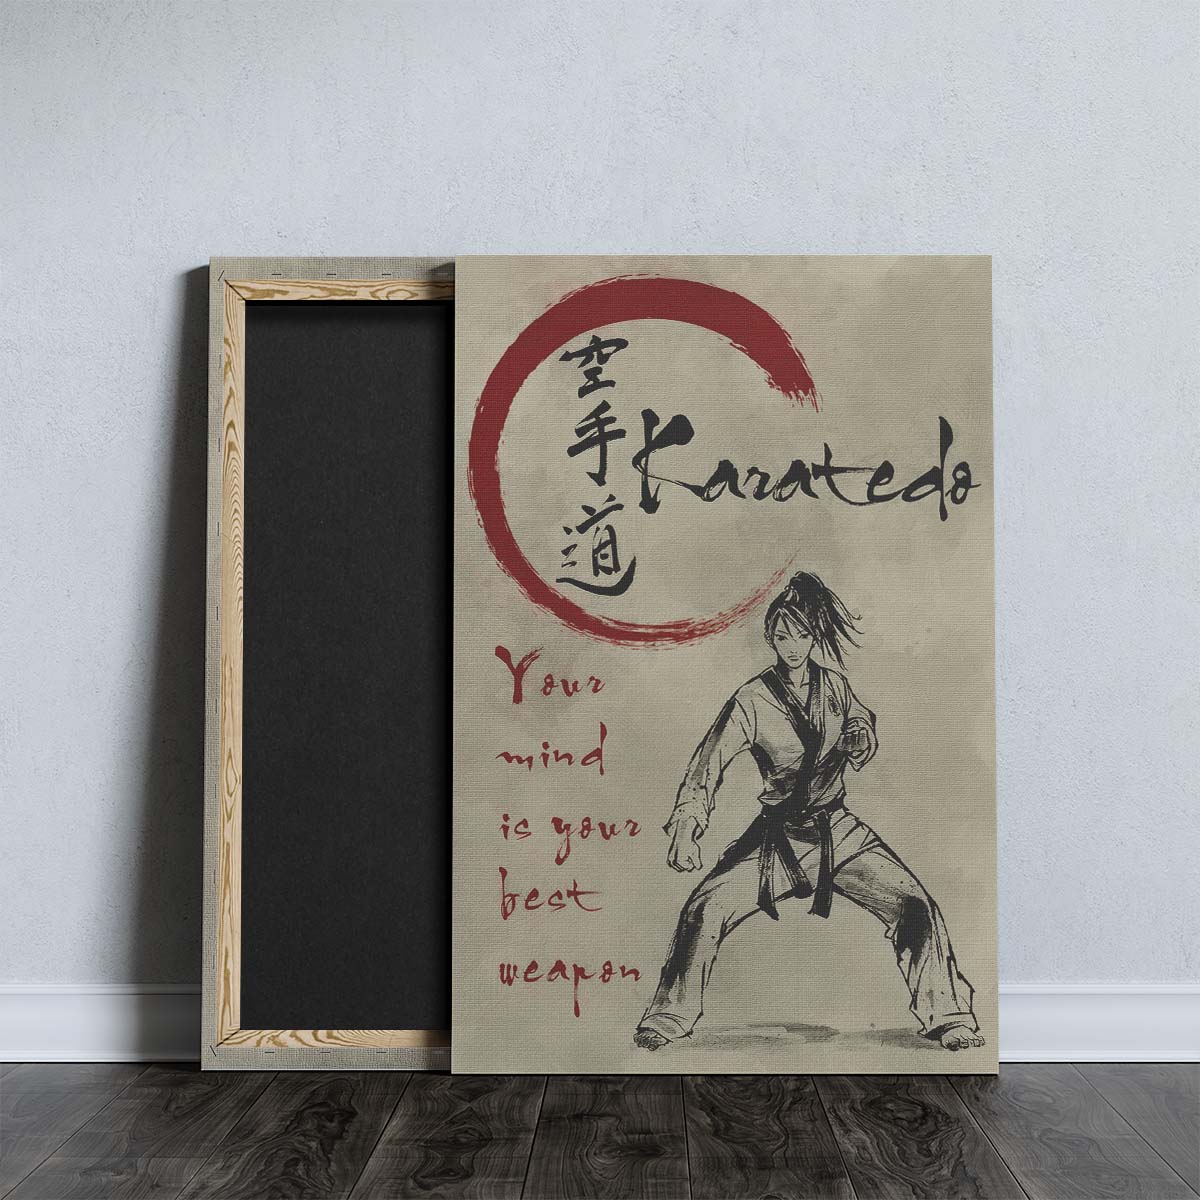 空手道
Karatedo
Your
mind
is your
best
weapon